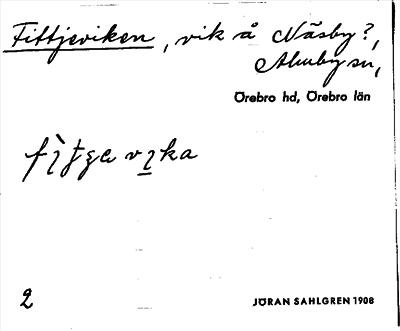 Fittjeviken, vik å Näsby?,
Almby sn,
Örebro hd, Örebro län
vika
2
JÖRAN SAHLGREN 1908